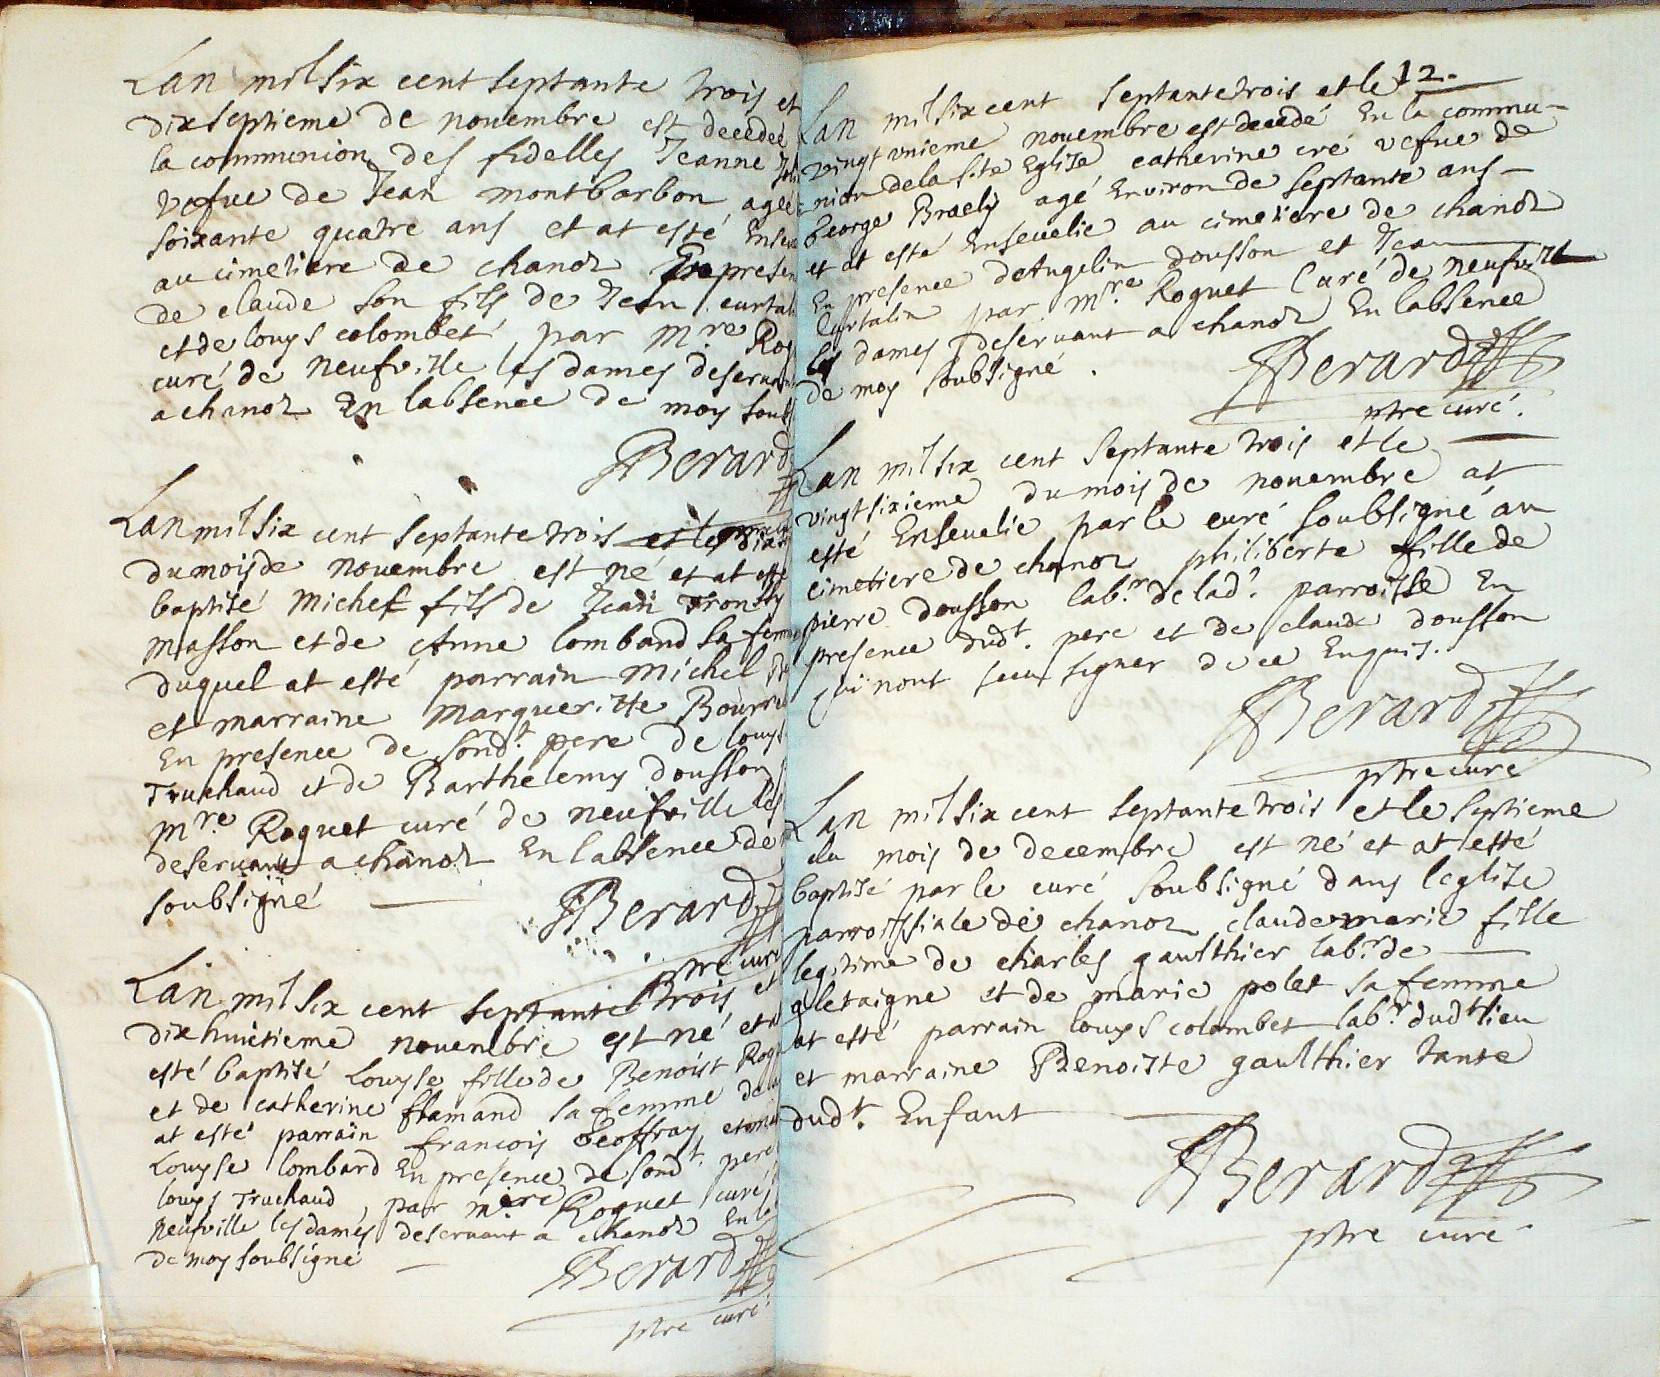 Lan mil six cent septante trois et
dixseptieme de nouembre est decedeé
la communion des fidelles Jeanne
vefue de Jean montbarbon ageé
soixante quatre ans et at esté Enseu
au cimetiere de chanoz En presen
de claude son fils de Jean curtal
et de louys colombet par mre Rog
curé de neufville les dames deseruant
a chanoz En labsence de moy soub
Berard
Lan mil six cent septante trois
du mois de nouembre est né et at esté
baptisé michel fils de Jean
masson et de Anne lombard sa femme
duquel at esté parrain michel
et marraine margueritte Bourr
En presence de sondt pere de louys
Truchaud et de Barthelemy dousson
mre Roquet curé de neufville les
deseruant a chanoz En labsence de
soubsigné
Berard
ptre curé
Lan mil six cent septante trois et
dixhuictieme nouembre est né et a
esté baptisé Louyse fille de Benoist Rog
et de catherine flamand sa femme de
at esté parrain francois Geoffray et ma
Louyse lombard En presence de sondt pere
louys Truchaud par mere Roquet curé
neufville les dames deseruant a chanoz En la
de moy soubsigné
Berard
ptre curé
12.
Lan mil six cent septante trois et le
vingt vnieme nouembre est decedé En la commu-
nion de la ste Eglise catherine cré vefue de
George Braely agé Enuiron de septante ans
et at esté Enseuelie au cimetiere de chanoz
En presence de Angelin dousson et Jean
Curtalin par mre Roquet Curé de neufville
les dames deseruant a chanoz En labsence
de moy soubsigné.
Berard
ptre curé.
Lan mil six cent septante trois et le
vingtsixieme du mois de nouembre at
esté Enseuelie par le curé soubsigné au
cimetiere de chanoz philiberte fille de
pierre dousson labr. de lad. parroisse En
presence dudt. pere et de claude dousson
qui nont sceu signer de ce Enquis.
Berard
ptre curé
Lan mil six cent septante trois et le septieme
du mois de decembre est né et at esté
baptisé par le curé soubsigné dans leglise
parroissiale de chanoz claude marie fille
legitime de charles gaulthier labr. de
gletaigne et de marie polet sa femme
at esté parrain louys colombet labr dudt lieu
et marraine Benoiste gaulthier tante
dudt. Enfant
Berard
ptre curé